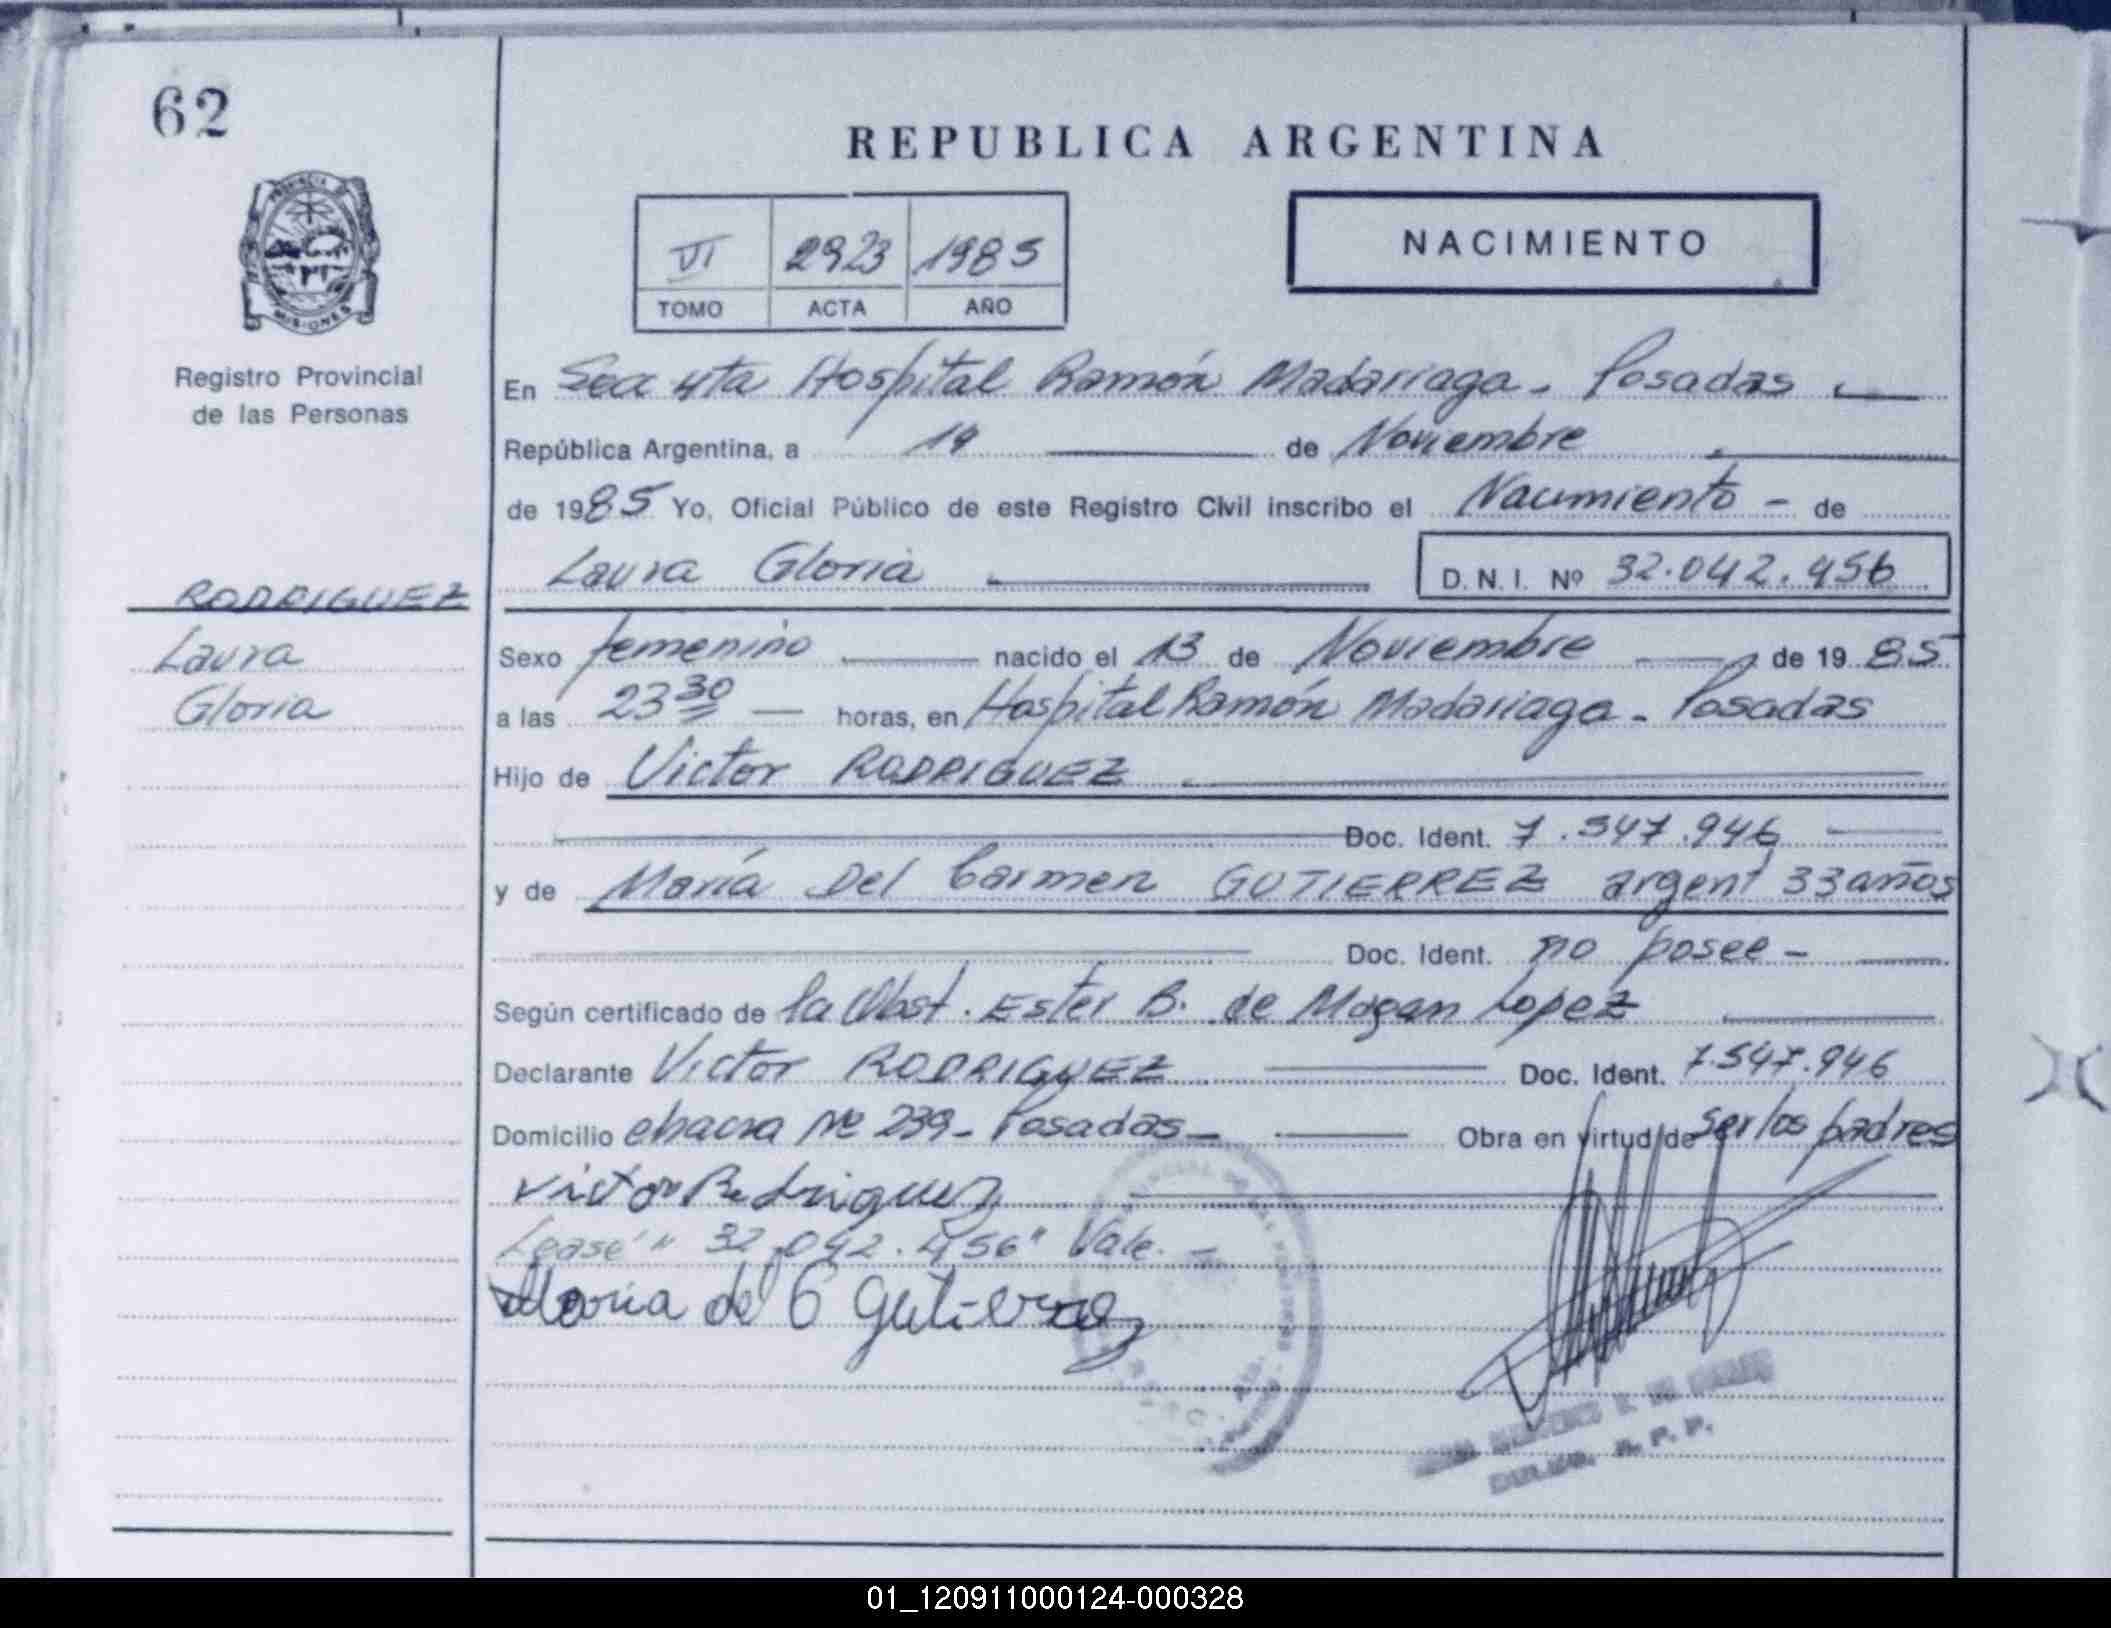 62
REPUBLICA ARGENTINA
NACIMIENTO
VI 2923 1985
TOMO ACTA AÑO
PROVINCIA DE
MISIONES
Registro Provincial
de las Personas
En Secc 4ta Hospital Ramón Madariaga - Posadas
República Argentina, a 19 de Noviembre
de 1985 Yo, Oficial Público de este Registro Civil inscribo el Nacimiento - de
Laura Gloria D. N. I. Nº 32.042.456
RODRIGUEZ
Laura
Gloria
Sexo femenino nacido el 13 de Noviembre de 1985
a las 23 30 — horas, en Hospital Ramón Madariaga - Posadas
Hijo de Victor RODRIGUEZ
Doc. Ident. 7.547.946
y de María Del Carmen GUTIERREZ argent 33 años
Doc. Ident. no posee -
Según certificado de la Obst. Ester B. de Mogan Lopez
Declarante Victor RODRIGUEZ Doc. Ident. 7.547.946
Domicilio chacra Nº 239 - Posadas - Obra en virtud de ser los padres
Victor Rodriguez
Lease "32.042.456" Vale. -
Maria del C Gutierrez
R. P. P.
01_120911000124-000328